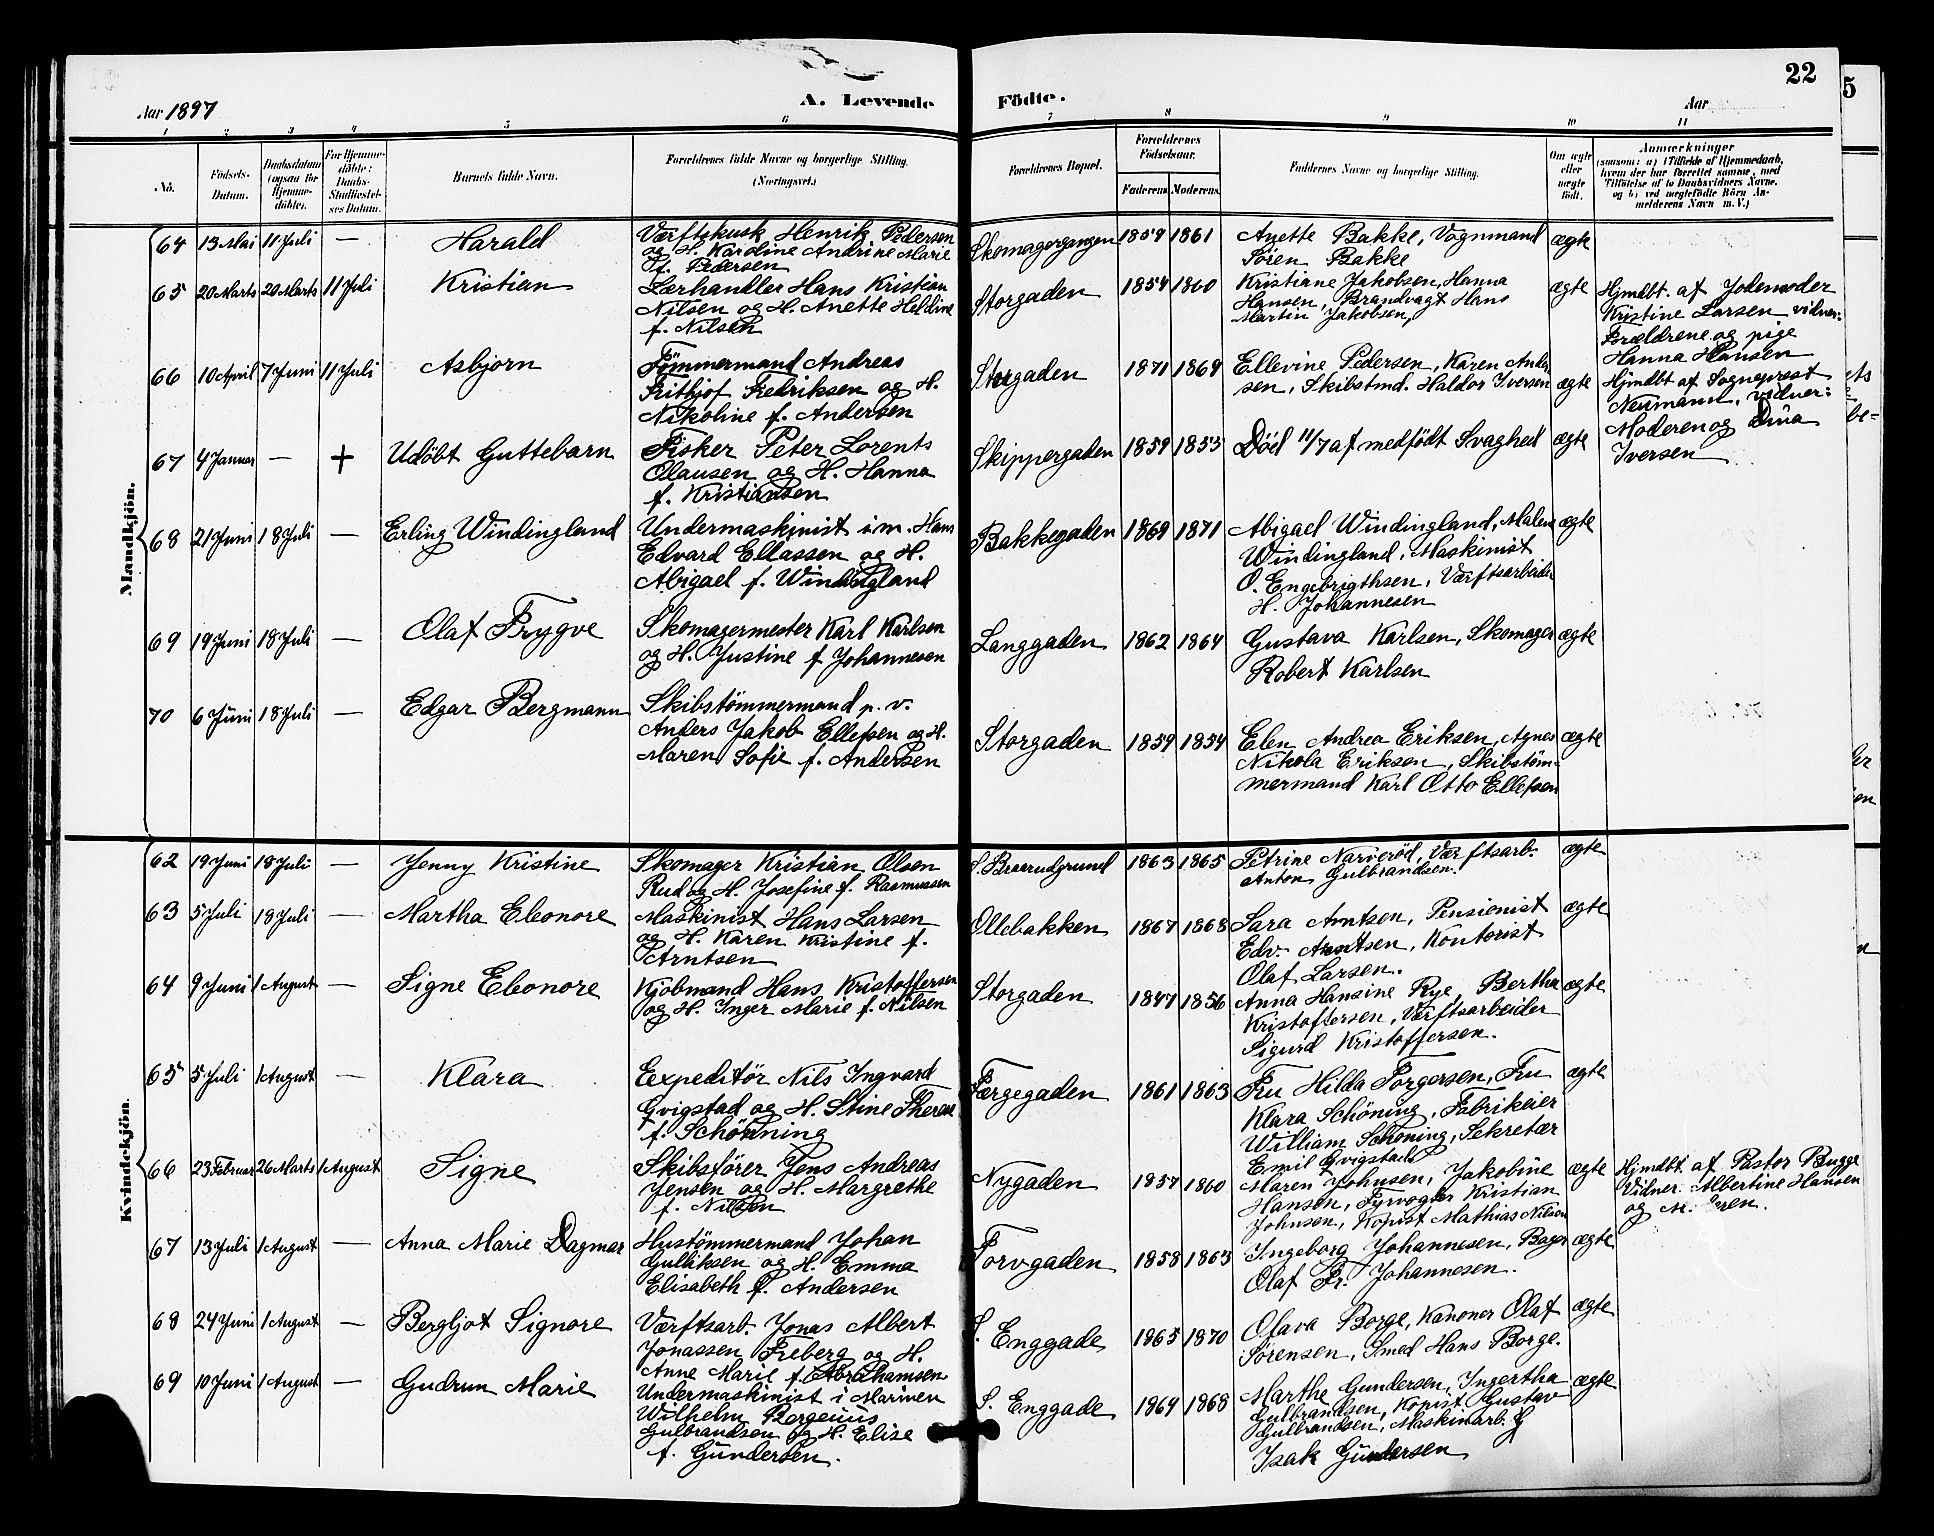 Aar 1897
A. Levende
Födte.
Aar
22
5
1 2 3 4 5 6 7 8 9 10 11
No.
Födsels-
Datum.
Daabsdatum
(ogsaa for
Hjemme-
döbte).
For Hjemme-
döbte:
Daabs-
Stadfæstel-
ses Datum.
Barnets fulde Navn.
Forældrenes fulde Navne og borgerlige Stilling.
(Næringsvei.)
Forældrenes Bopæl.
Forældrenes
Födselsaar.
Faderens Moderens
Faddernes Navne og borgerlige Stilling.
Om ægte
eller
uægte
födt.
Anmærkninger
(saasom: a) i Tilfælde af Hjemmedaab,
hvem der har forrettet samme, med
Tilföielse af to Daabsvidners Navne,
og b) ved uægtefödte Börn An-
melderens Navn m. V.)
Mandkjön.
64 13 Mai 11 Juli — Harald
Værftskusk Henrik Pedersen
og H. Karoline Andrine Marie
f. Pedersen
Skomagergangen 1859 1861
Anette Bakke, Vognmand
Sören Bakke
ægte
65 20 Marts 20 Marts 11 Juli Kristian
Lærhandler Hans Kristian
Nilsen og H. Anette Heldine
f. Nilsen
Storgaden 1854 1860
Kristiane Jakobsen, Hanna
Hansen, Brandvagt Hans
Martin Jakobsen,
ægte
Hjmdbt. af Jodemoder
Kristine Larsen vidner:
Forældrene og pige
Hanna Hansen
66 10 April 7 Juni 11 Juli Asbjørn
Tømmermand Andreas
Frithjof Fredriksen og H.
Nikoline f. Andersen
Storgaden 1871 1869
Ellevine Pedersen, Karen Ander
sen, Skibstmd. Haldor Iversen
ægte
Hjmdbt af Sogneprest
Neumann, vidner:
Moderen og Dina
Iversen
67 4 Januar — + Udöbt Guttebarn
Fisker Peter Lorents
Olausen og H. Hanna
f. Kristiansen
Skippergaden 1859 1853
Död 11/7 af medfödt Svaghed
ægte
68 21 Juni 18 Juli — Erling Windingland
Undermaskinist i. m. Hans
Edvard Eliassen og H.
Abigael f. Windingland
Bakkegaden 1869 1871
Abigael Windingland, Malene
Windingland, Maskinist
O. Engebrigthsen, Værftsarbeider
H. Johannesen
ægte
69 19 Juni 18 Juli — Olaf Trygve
Skomagermester Karl Karlsen
og H. Justine f Johannesen
Langgaden 1862 1864
Gustava Karlsen, Skomager
Robert Karlsen
ægte
70 6 Juni 18 Juli — Edgar Bergmann
Skibstømmermand p. v.
Anders Jakob Ellefsen og H.
Maren Sofie f. Andersen
Storgaden 1859 1854
Elen Andrea Eriksen, Agnes
Nikola Eriksen, Skibstøm-
mermand Karl Otto Ellefsen
ægte
Kvindekjön.
62 19 Juni 18 Juli — Jenny Kristine
Skomager Kristian Olsen
Rud og H. Josefine f. Rasmussen
S. Braarudgrund 1863 1865
Petrine Narverød, Værftsarb.
Anton Gulbrandsen.
ægte
63 5 Juli 18 Juli — Martha Eleonore
Maskinist Hans Larsen
og H. Karen Kristine f.
Arntsen
Ollebakken 1867 1868
Sara Arntsen, Pensionist
Edv. Arntsen, Kontorist
Olaf Larsen.
ægte
64 9 Juni 1 August — Signe Eleonore
Kjøbmand Hans Kristoffersen
og H. Inger Marie f. Nilsen
Storgaden 1847 1856
Anna Hansine Rye, Bertha
Kristoffersen, Værftsarbeider
Sigurd Kristoffersen.
ægte
65 5 Juli 1 August — Klara
Expeditør Nils Ingvard
Qvigstad og H. Stine Therese
f. Schönning
Færgegaden 1861 1863
Fru Hilda Torgersen, Fru
Klara Schöning, Fabrikeier
William Schöning, Sekretær
Emil Qvigstad
ægte
66 23 Februar 26 Marts 1 August Signe
Skibsfører Jens Andreas
Jensen og H. Margrethe
f. Nilsen
Nygaden 1857 1860
Maren Johnsen, Jakobine
Hansen, Fyrvogter Kristian
Johnsen, Kopist Mathias Nilsen
ægte
Hjmdbt. af Pastor Bugge
Vidner. Albertine Hansen
og Moderen.
67 13 Juli 1 August — Anna Marie Dagmar
Hustømmermand Johan
Gulliksen og H. Emma
Elisabeth f. Andersen
Torvgaden 1858 1863
Ingeborg Johannesen, Bager
Olaf Fr. Johannesen.
ægte
68 24 Juni 1 August — Bergljot Signore
Værftsarb. Jonas Albert
Jonassen Freberg og H.
Anne Marie f. Abrahamsen
S. Enggade 1865 1870
Olava Borge, Kanoner Olaf
Sørensen, Smed Hans Borge.
ægte
69 10 Juni 1 August — Gudrun Marie
Undermaskinist i Marinen
Wilhelm Borgenius
Gulbrandsen og H. Elise
f. Gundersen.
S. Enggade 1869 1868
Marthe Gundersen, Ingertha
Gulbrandsen, Kopist Gustav
Gulbrandsen, Maskinarb.
Isak Gundersen
ægte